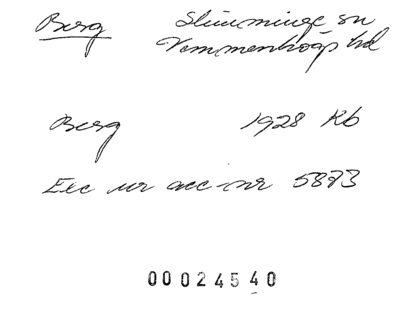 Berg Slimminge sn
Vemmenhögs hd
Berg 1928 Kb
Exc ur acc-nr 5873
00024540